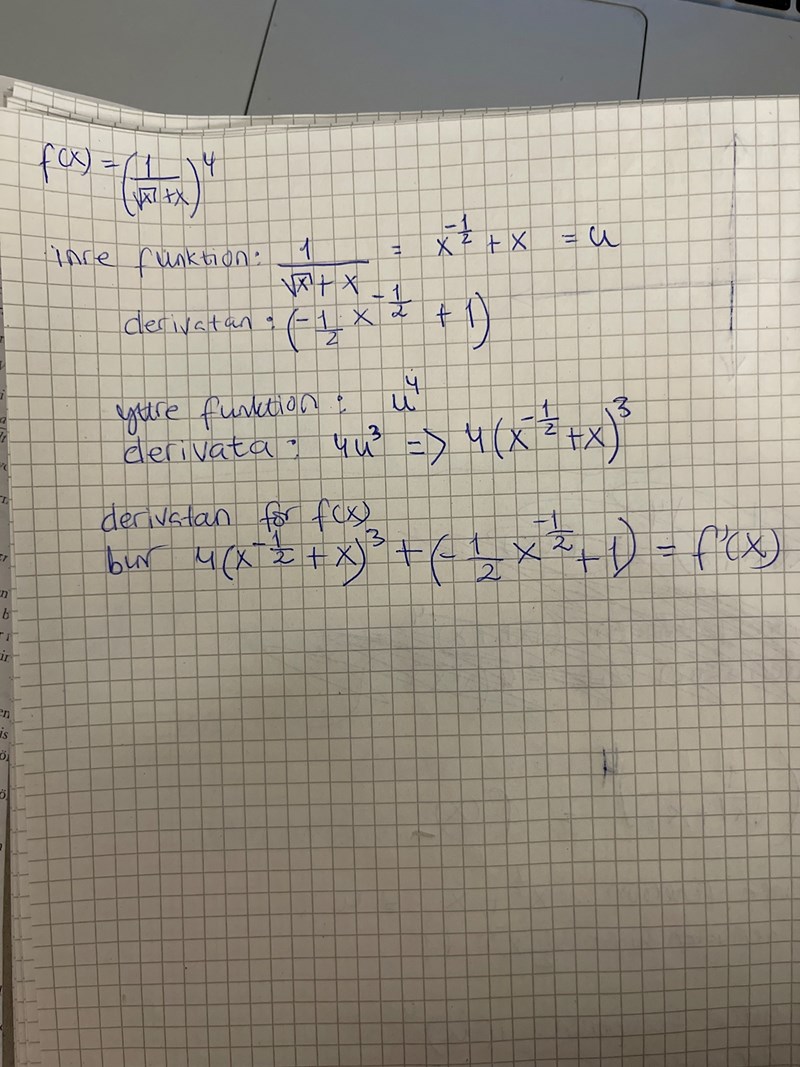 f(x) = (1/(√x + x))^4
inre funktion: 1/(√x + x) = x^(-1/2) + x = u
derivatan: (-1/2 x^(-1/2) + 1)
yttre funktion: u^4
derivata: 4u^3 => 4(x^(-1/2) + x)^3
derivatan för f(x)
bur 4(x^(-1/2) + x)^3 + (-1/2 x^(-1/2) + 1) = f'(x)